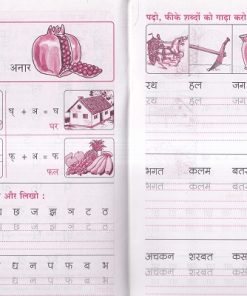 अनार
घ् + अ = घ
घर
फ् + अ = फ
फल
और लिखो :
छ ज झ ञ ट ठ
ध न प फ ब भ
पढ़ो, फीके शब्दों को गाढ़ा करो
रथ हल जग
रथ हल जग
भगत कलम
भगत कलम
अचकन शरबत
अचकन शरबत